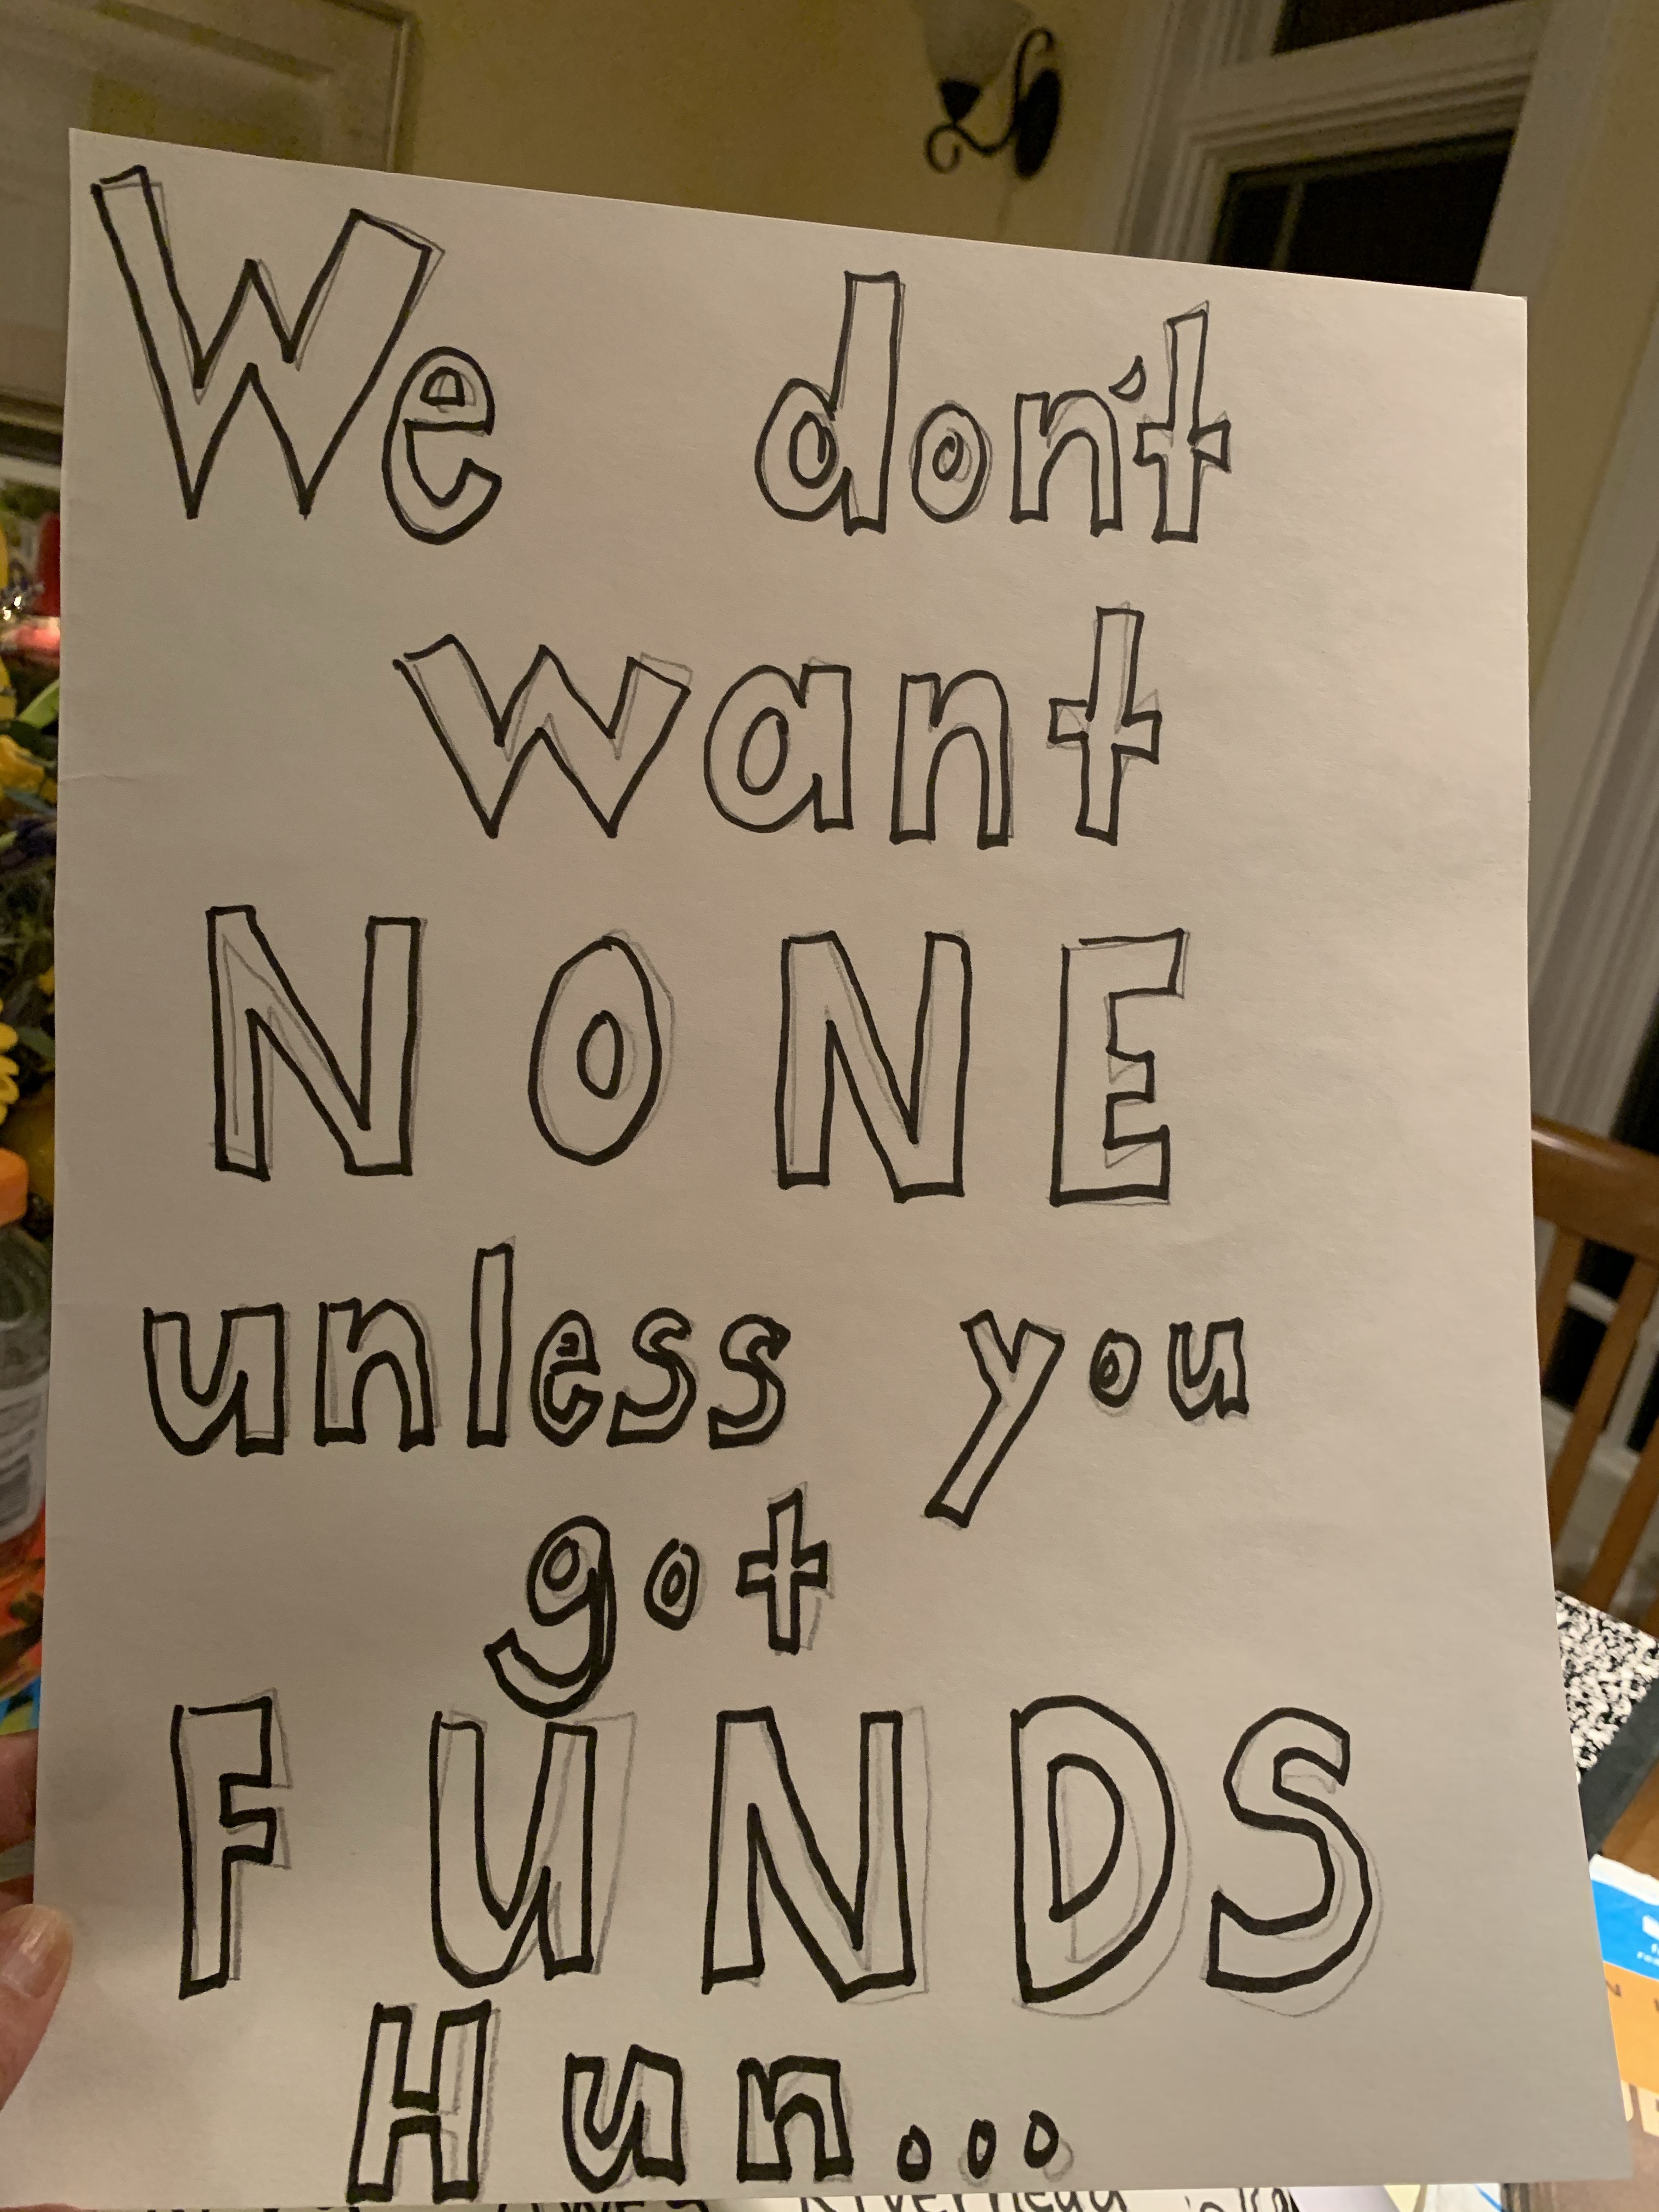 We don't
want
NONE
unless you
got
FUNDS
Hun...
Riverhead